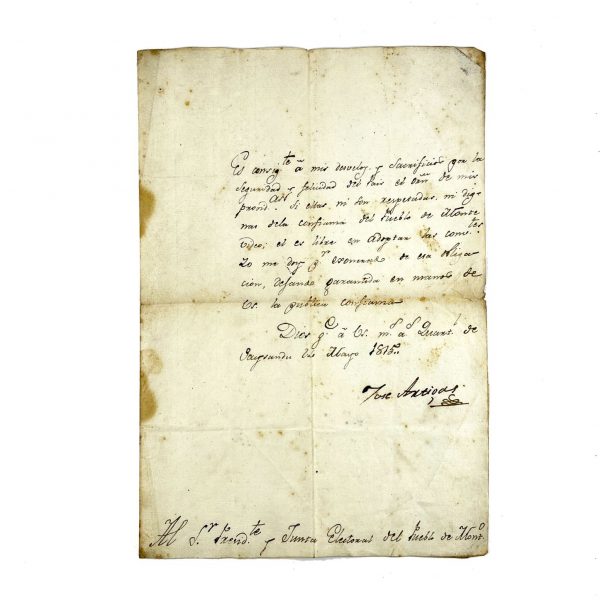 Es consig.te â mis desvelos, y Sacrificios por la
Seguridad, y felicidad del Pais el de mis
provid.as Si ellas, ni son respetadas, ni dig-
nas dela confianza del Pueblo de Monte
video; el es libre en adoptar las conv.tes
Yo me doy p.r exonerado de esa obliga-
ción, dejando garantida en manos de
VS. la publica confianza
Dios g.e â VS. m.s a.s Quart.l de
Paysandu Mayo 1815.
Jose Artigas
Al S.r Presid.te y Junta Electoral del Pueblo de Mont.o